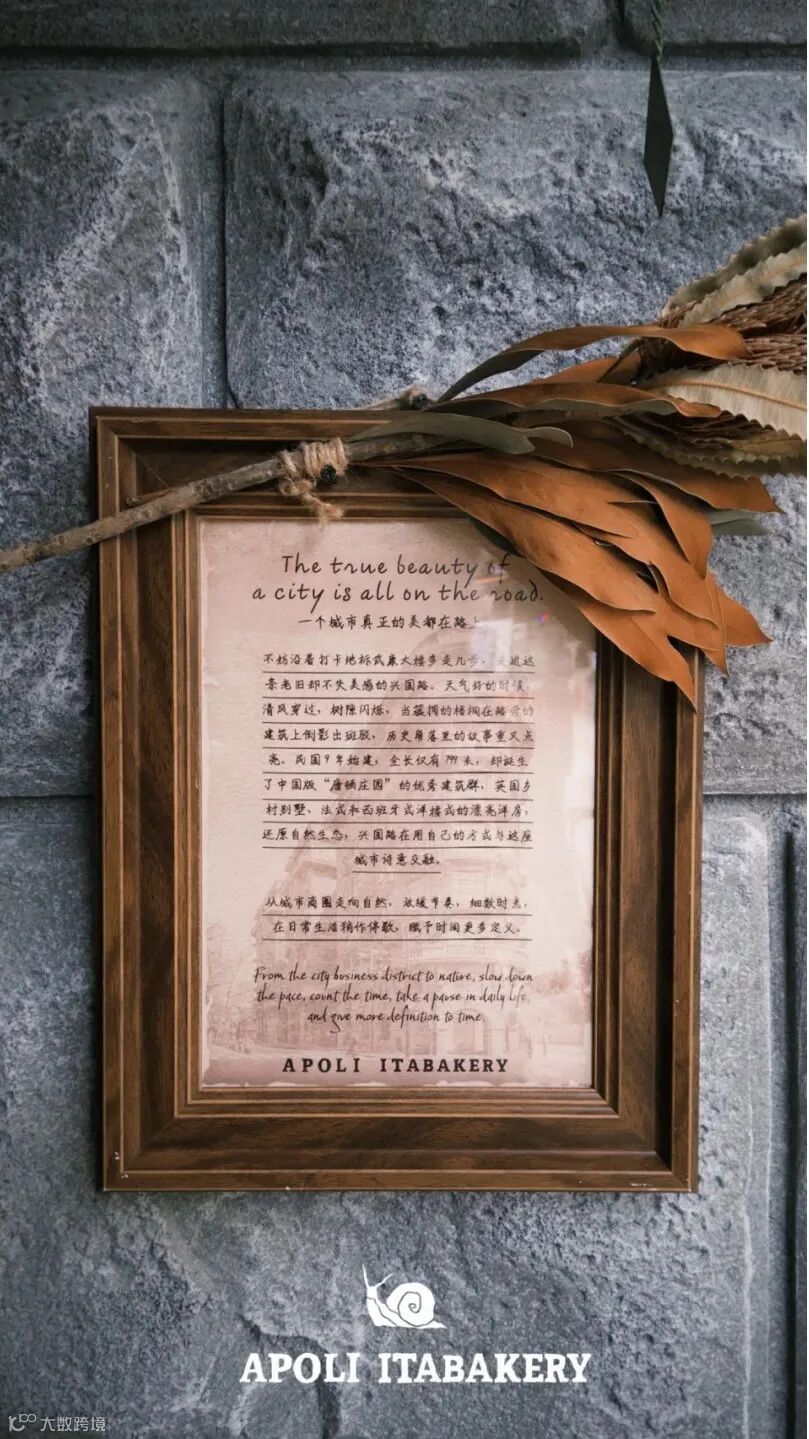 The true beauty of
a city is all on the road.
一个城市真正的美都在路上
不妨沿着打卡地标武康大楼多走几步,走进这
条老旧却不失美感的兴国路。天气好的时候,
清风穿过,树隙闪烁,当簇拥的梧桐在路旁的
建筑上倒影出斑驳,历史角落里的故事重又点
亮。民国9年始建,全长仅有799米,却诞生
了中国版“唐顿庄园”的优秀建筑群,英国乡
村别墅、法式和西班牙式洋楼式的漂亮洋房,
还原自然生态,兴国路在用自己的方式与这座
城市诗意交融。
从城市商圈走向自然,放缓节奏,细数时光,
在日常生活稍作停歇,赋予时间更多定义。
From the city business district to nature, slow down
the pace, count the time, take a pause in daily life,
and give more definition to time.
APOLI ITABAKERY
APOLI ITABAKERY
大数跨境